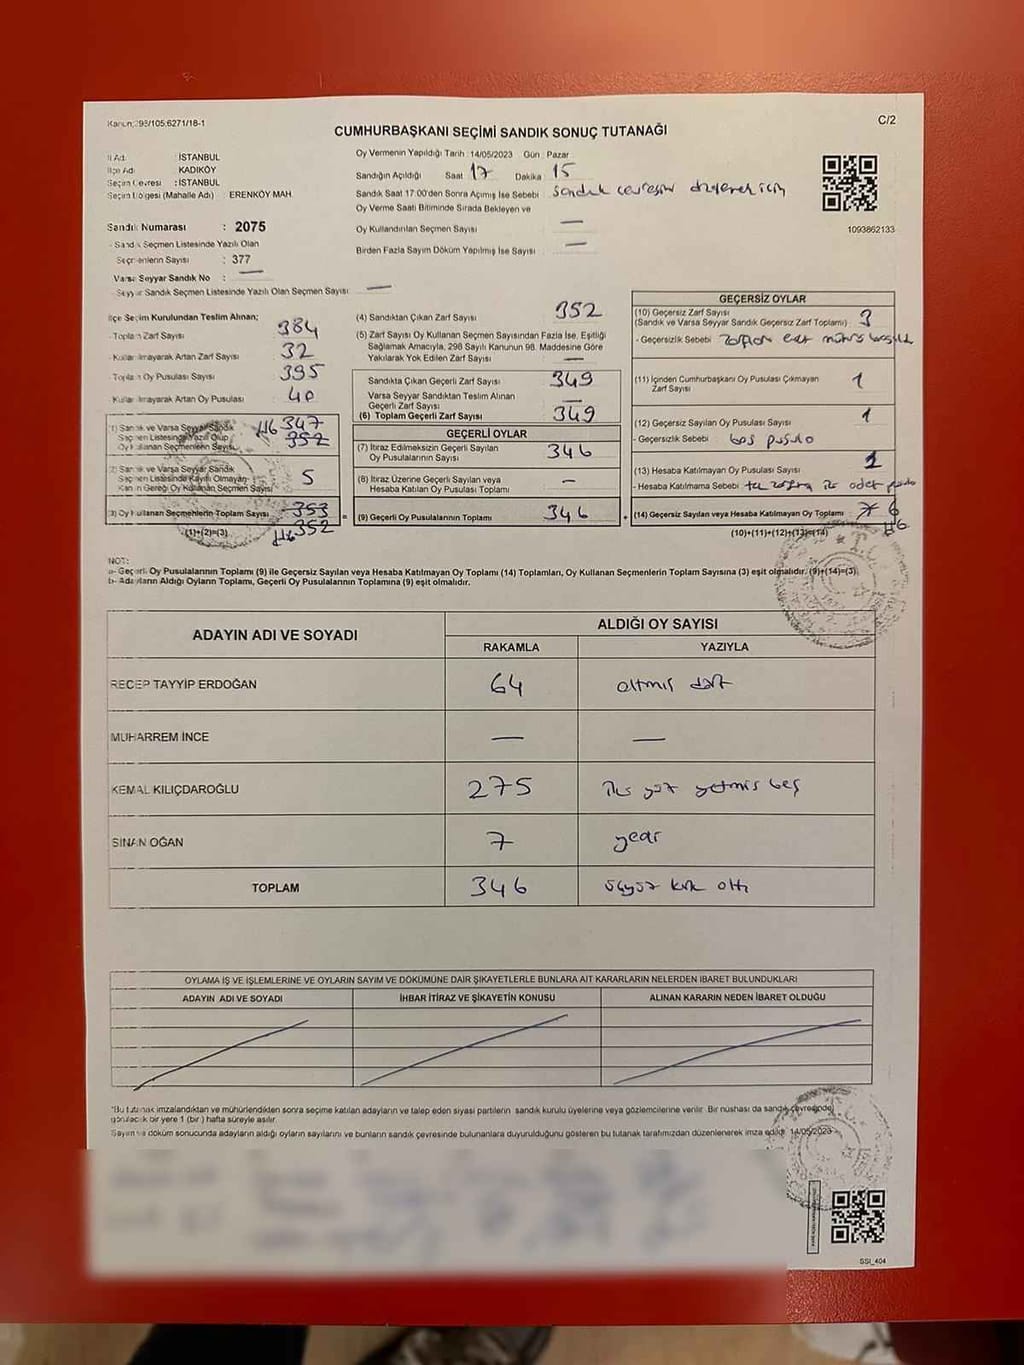 Kanun: 298/105;6271/18-1
C/2
CUMHURBAŞKANI SEÇİMİ SANDIK SONUÇ TUTANAĞI
İl Adı : İSTANBUL
İlçe Adı : KADIKÖY
Seçim Çevresi : İSTANBUL
Seçim Bölgesi (Mahalle Adı) ERENKÖY MAH.
Oy Vermenin Yapıldığı Tarih :14/05/2023 Gün : Pazar
Sandığın Açıldığı Saat 17 Dakika 15
Sandık Saat 17:00'den Sonra Açılmış İse Sebebi sandık çevresini
Oy Verme Saati Bitiminde Sırada Bekleyen ve
Oy Kullandırılan Seçmen Sayısı —
Birden Fazla Sayım Döküm Yapılmış İse Sayısı —
1093862133
Sandık Numarası : 2075
- Sandık Seçmen Listesinde Yazılı Olan
Seçmenlerin Sayısı : 377
Varsa Seyyar Sandık No : —
- Seyyar Sandık Seçmen Listesinde Yazılı Olan Seçmen Sayısı: —
İlçe Seçim Kurulundan Teslim Alınan;
- Toplam Zarf Sayısı 384
- Kullanılmayarak Artan Zarf Sayısı 32
- Toplam Oy Pusulası Sayısı 395
Kullanılmayarak Artan Oy Pusulası 40
(1) Sandık ve Varsa Seyyar Sandık
Seçmen Listesinde Yazılı Olup
Oy Kullanan Seçmenlerin Sayısı 347
352
(2) Sandık ve Varsa Seyyar Sandık
Seçmen Listesinde Kayıtlı Olmayan
Kanun Gereği Oy Kullanan Seçmen Sayısı 5
(3) Oy Kullanan Seçmenlerin Toplam Sayısı 353
(1)+(2)=(3) 352
(4) Sandıktan Çıkan Zarf Sayısı 352
(5) Zarf Sayısı Oy Kullanan Seçmen Sayısından Fazla İse, Eşitliği
Sağlamak Amacıyla, 298 Sayılı Kanunun 98. Maddesine Göre
Yakılarak Yok Edilen Zarf Sayısı —
Sandıkta Çıkan Geçerli Zarf Sayısı 349
Varsa Seyyar Sandıktan Teslim Alınan
Geçerli Zarf Sayısı
(6) Toplam Geçerli Zarf Sayısı 349
GEÇERLİ OYLAR
(7) İtiraz Edilmeksizin Geçerli Sayılan
Oy Pusulalarının Sayısı 346
(8) İtiraz Üzerine Geçerli Sayılan veya
Hesaba Katılan Oy Pusulası Toplamı —
(9) Geçerli Oy Pusulalarının Toplamı 346
GEÇERSİZ OYLAR
(10) Geçersiz Zarf Sayısı
(Sandık ve Varsa Seyyar Sandık Geçersiz Zarf Toplamı) 3
- Geçersizlik Sebebi
(11) İçinden Cumhurbaşkanı Oy Pusulası Çıkmayan
Zarf Sayısı 1
(12) Geçersiz Sayılan Oy Pusulası Sayısı 1
- Geçersizlik Sebebi boş pusula
(13) Hesaba Katılmayan Oy Pusulası Sayısı 1
- Hesaba Katılmama Sebebi
(14) Geçersiz Sayılan veya Hesaba Katılmayan Oy Toplamı 7 6
(10)+(11)+(12)+(13)=(14)
NOT:
a- Geçerli Oy Pusulalarının Toplamı (9) ile Geçersiz Sayılan veya Hesaba Katılmayan Oy Toplamı (14) Toplamları, Oy Kullanan Seçmenlerin Toplam Sayısına (3) eşit olmalıdır. (9)+(14)=(3).
b- Adayların Aldığı Oyların Toplamı, Geçerli Oy Pusulalarının Toplamına (9) eşit olmalıdır.
ADAYIN ADI VE SOYADI
ALDIĞI OY SAYISI
RAKAMLA YAZIYLA
RECEP TAYYİP ERDOĞAN 64 altmış dört
MUHARREM İNCE — —
KEMAL KILIÇDAROĞLU 275 iki yüz yetmiş beş
SİNAN OĞAN 7 yedi
TOPLAM 346 üçyüz kırk altı
OYLAMA İŞ VE İŞLEMLERİNE VE OYLARIN SAYIM VE DÖKÜMÜNE DAİR ŞİKAYETLERLE BUNLARA AİT KARARLARIN NELERDEN İBARET BULUNDUKLARI
ADAYIN ADI VE SOYADI İHBAR İTİRAZ VE ŞİKAYETİN KONUSU ALINAN KARARIN NEDEN İBARET OLDUĞU
*Bu tutanak imzalandıktan ve mühürlendikten sonra seçime katılan adayların ve talep eden siyasi partilerin sandık kurulu üyelerine veya gözlemcilerine verilir. Bir nüshası da sandık çevresinde
görülecek bir yere 1 (bir) hafta süreyle asılır.
Sayım ve döküm sonucunda adayların aldığı oyların sayılarını ve bunların sandık çevresinde bulunanlara duyurulduğunu gösteren bu tutanak tarafımızdan düzenlenerek imza edildi. 14/05/2023
SSI_404